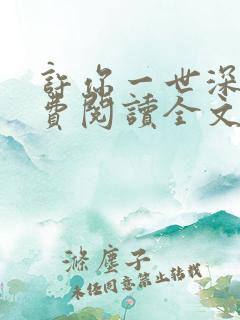 許你一世深
費閱讀全文
滌塵子
未經同意禁止轉載